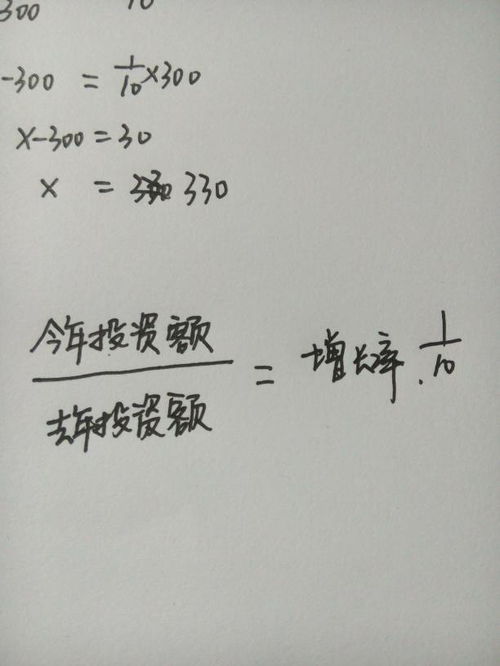 300 10
-300 = 1/10 × 300
x-300=30
x = 330
今年投资额
去年投资额
= 增长率. 1/10